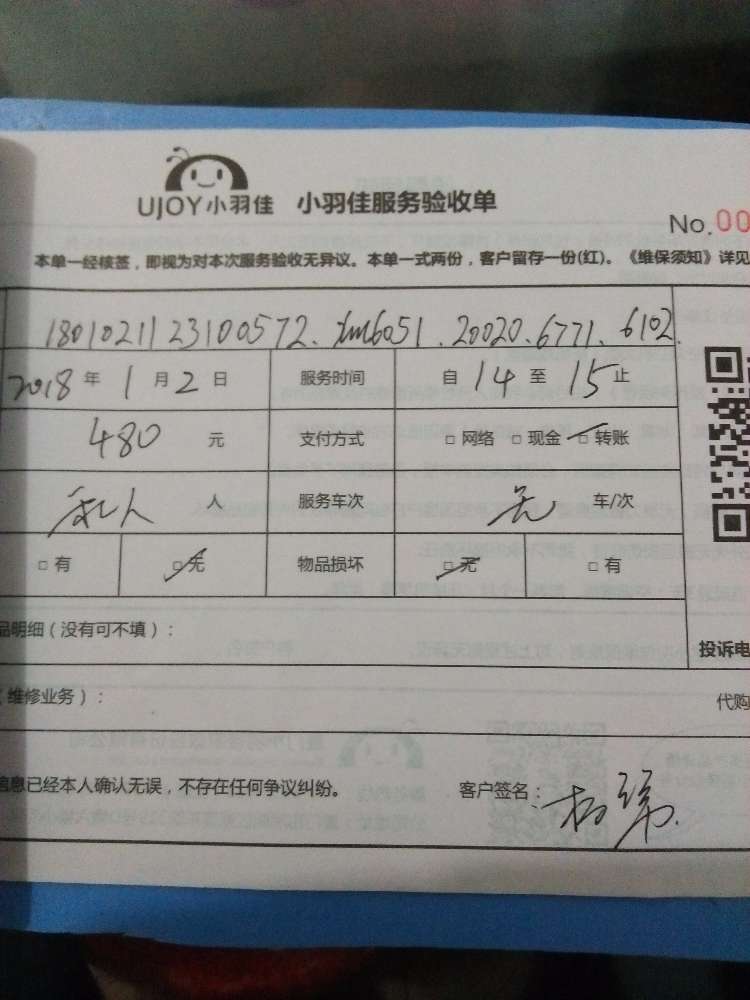 UJOY小羽佳 小羽佳服务验收单
No.00
本单一经核签，即视为对本次服务验收无异议。本单一式两份，客户留存一份(红)。《维保须知》详见
1801021123100572. xm6051.20020.6771.6102.
2018年1月2日 服务时间 自14至15止
480元 支付方式 □网络 □现金 □转账
私人 人 服务车次 无 车/次
□有 □无 物品损坏 □无 □有
品明细（没有可不填）：
投诉电
（维修业务）：
代购
信息已经本人确认无误，不存在任何争议纠纷。 客户签名：杨